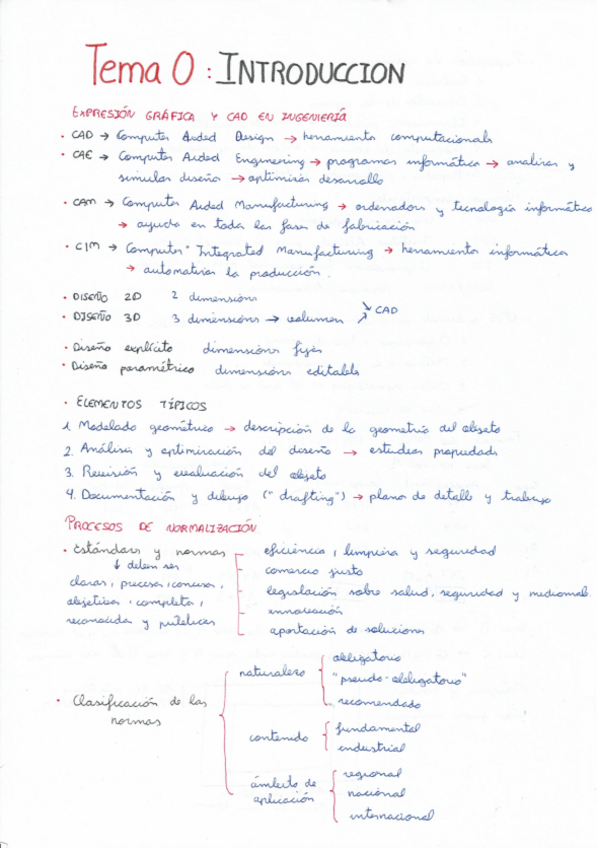 Tema 0 : INTRODUCCION
EXPRESIÓN GRÁFICA Y CAD EN INGENIERÍA
· CAD → Computer Aided Design → herramienta computacionals
· CAE → Computer Aided Engineering → programas informática → analizar y
simular diseño → optimizar desarrollo
· CAM → Computer Aided Manufacturing → ordenadores y tecnología informática
→ ayuda en todas las fases de fabricación
· CIM → Computer Integrated Manufacturing → herramientas informáticas
→ automatizar la producción.
· DISEÑO 2D 2 dimensions
· DISEÑO 3D 3 dimensions → volumen
CAD
· Diseño explícito dimensions fijas
· Diseño paramétrico dimensions editables
· ELEMENTOS TÍPICOS
1. Modelado geométrico → descripción de la geometría del objeto
2. Análisis y optimización del diseño → estudiar propiedads
3. Revisión y evaluación del objeto
4. Documentación y dibujo ("drafting") → planos de detalle y trabajo
PROCESOS DE NORMALIZACIÓN
· Estándars y normas
↓ deben ser
claras, precisas, concisas,
objetivas, completas,
reconocidas y públicas
eficiencia, limpieza y seguridad
comercio justo
legislación sobre salud, seguridad y medioamb.
innovación
aportación de solucions
· Clasificación de las
normas
naturaleza
obligatorio
"pseudo-obligatorio"
recomendado
contenido
fundamental
industrial
ámbito de
aplicación
regional
nacional
internacional